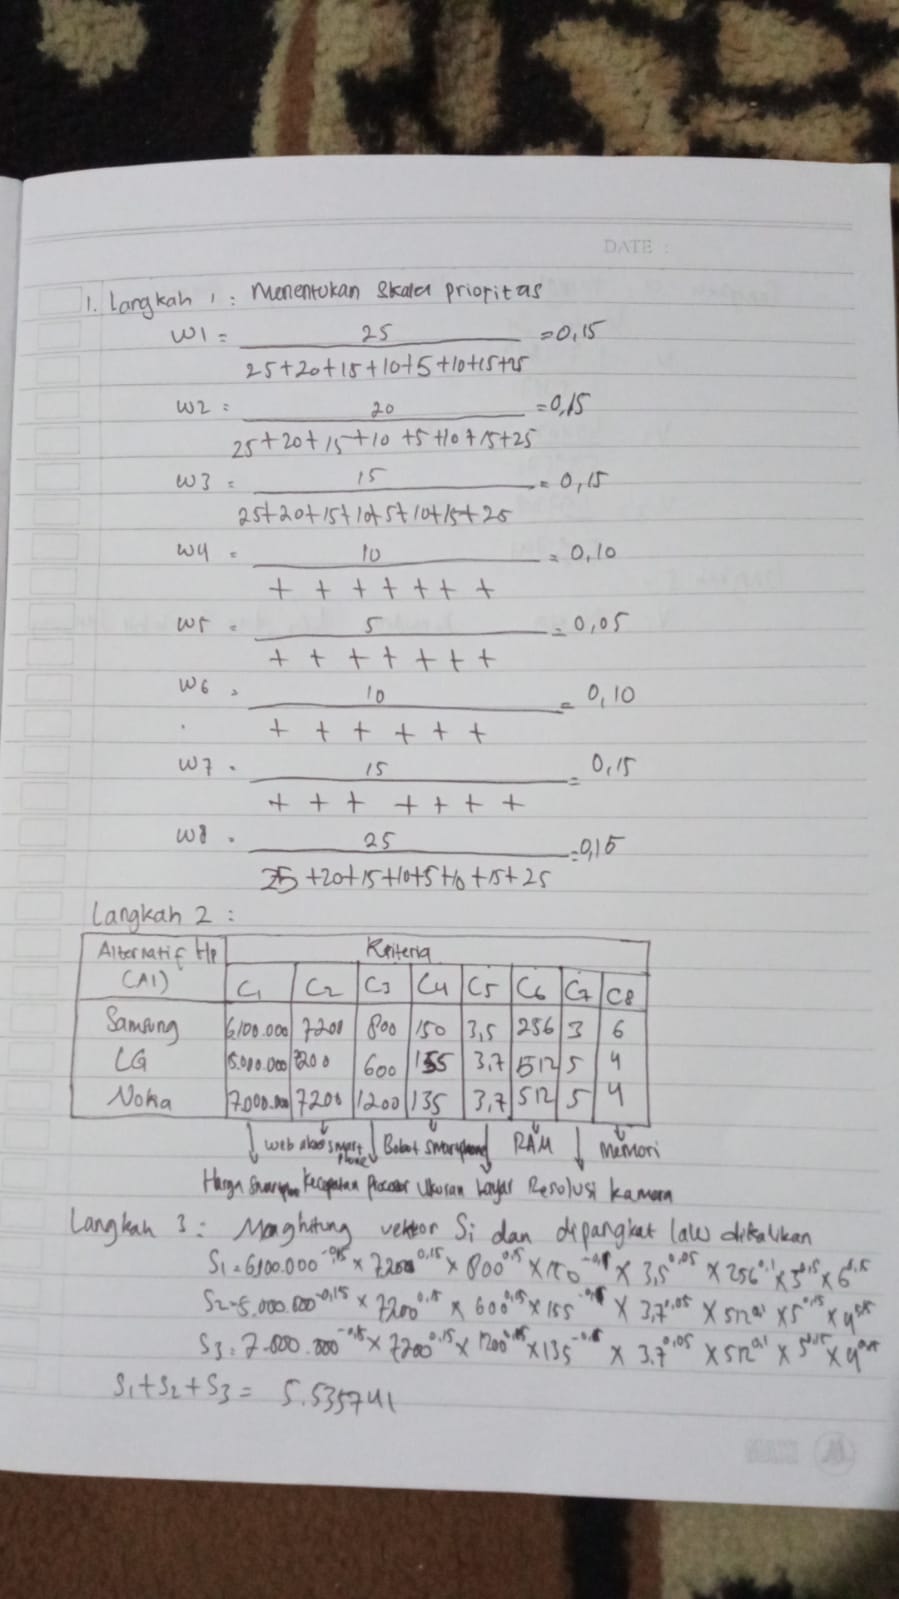 DATE :
1. Langkah 1 : Menentukan Skala prioritas
W1 = 25 / 25+20+15+10+5+10+15+25 = 0,15
W2 = 20 / 25+20+15+10+5+10+15+25 = 0,15
W3 = 15 / 25+20+15+10+5+10+15+25 = 0,15
W4 = 10 / + + + + + + + = 0,10
W5 = 5 / + + + + + + + = 0,05
W6 = 10 / + + + + + + = 0,10
W7 = 15 / + + + + + + + = 0,15
W8 = 25 / 25+20+15+10+5+10+15+25 = 0,15
Langkah 2 :
Alternatif Hp Kriteria
(A1) C1 C2 C3 C4 C5 C6 C7 C8
Samsung 6.100.000 7200 800 150 3,5 256 3 6
LG 5.000.000 7200 600 155 3.7 512 5 4
Nokia 7.000.000 7200 1200 135 3,7 512 5 4
smart phone Bobot smartphone RAM Memori
Harga Kecepatan Ukuran Layar Resolusi kamera
Langkah 3 : Menghitung vektor Si dan dipangkat lalu dikalikan
S1 = 6.100.000^-0,15 × 7200^0,15 × 800^0,15 × 150 × 3,5^0,05 × 256^0,1 × 3^0,15 × 6
S2 = 5.000.000^-0,15 × 7200^0,15 × 600^0,15 × 155 × 3,7^0,05 × 512^0,1 × 5^0,15 × 4
S3 = 7.000.000^-0,15 × 7200^0,15 × 1200^0,15 × 135 × 3.7^0,05 × 512^0,1 × 5^0,15 × 4
S1+S2+S3 = 5.535741